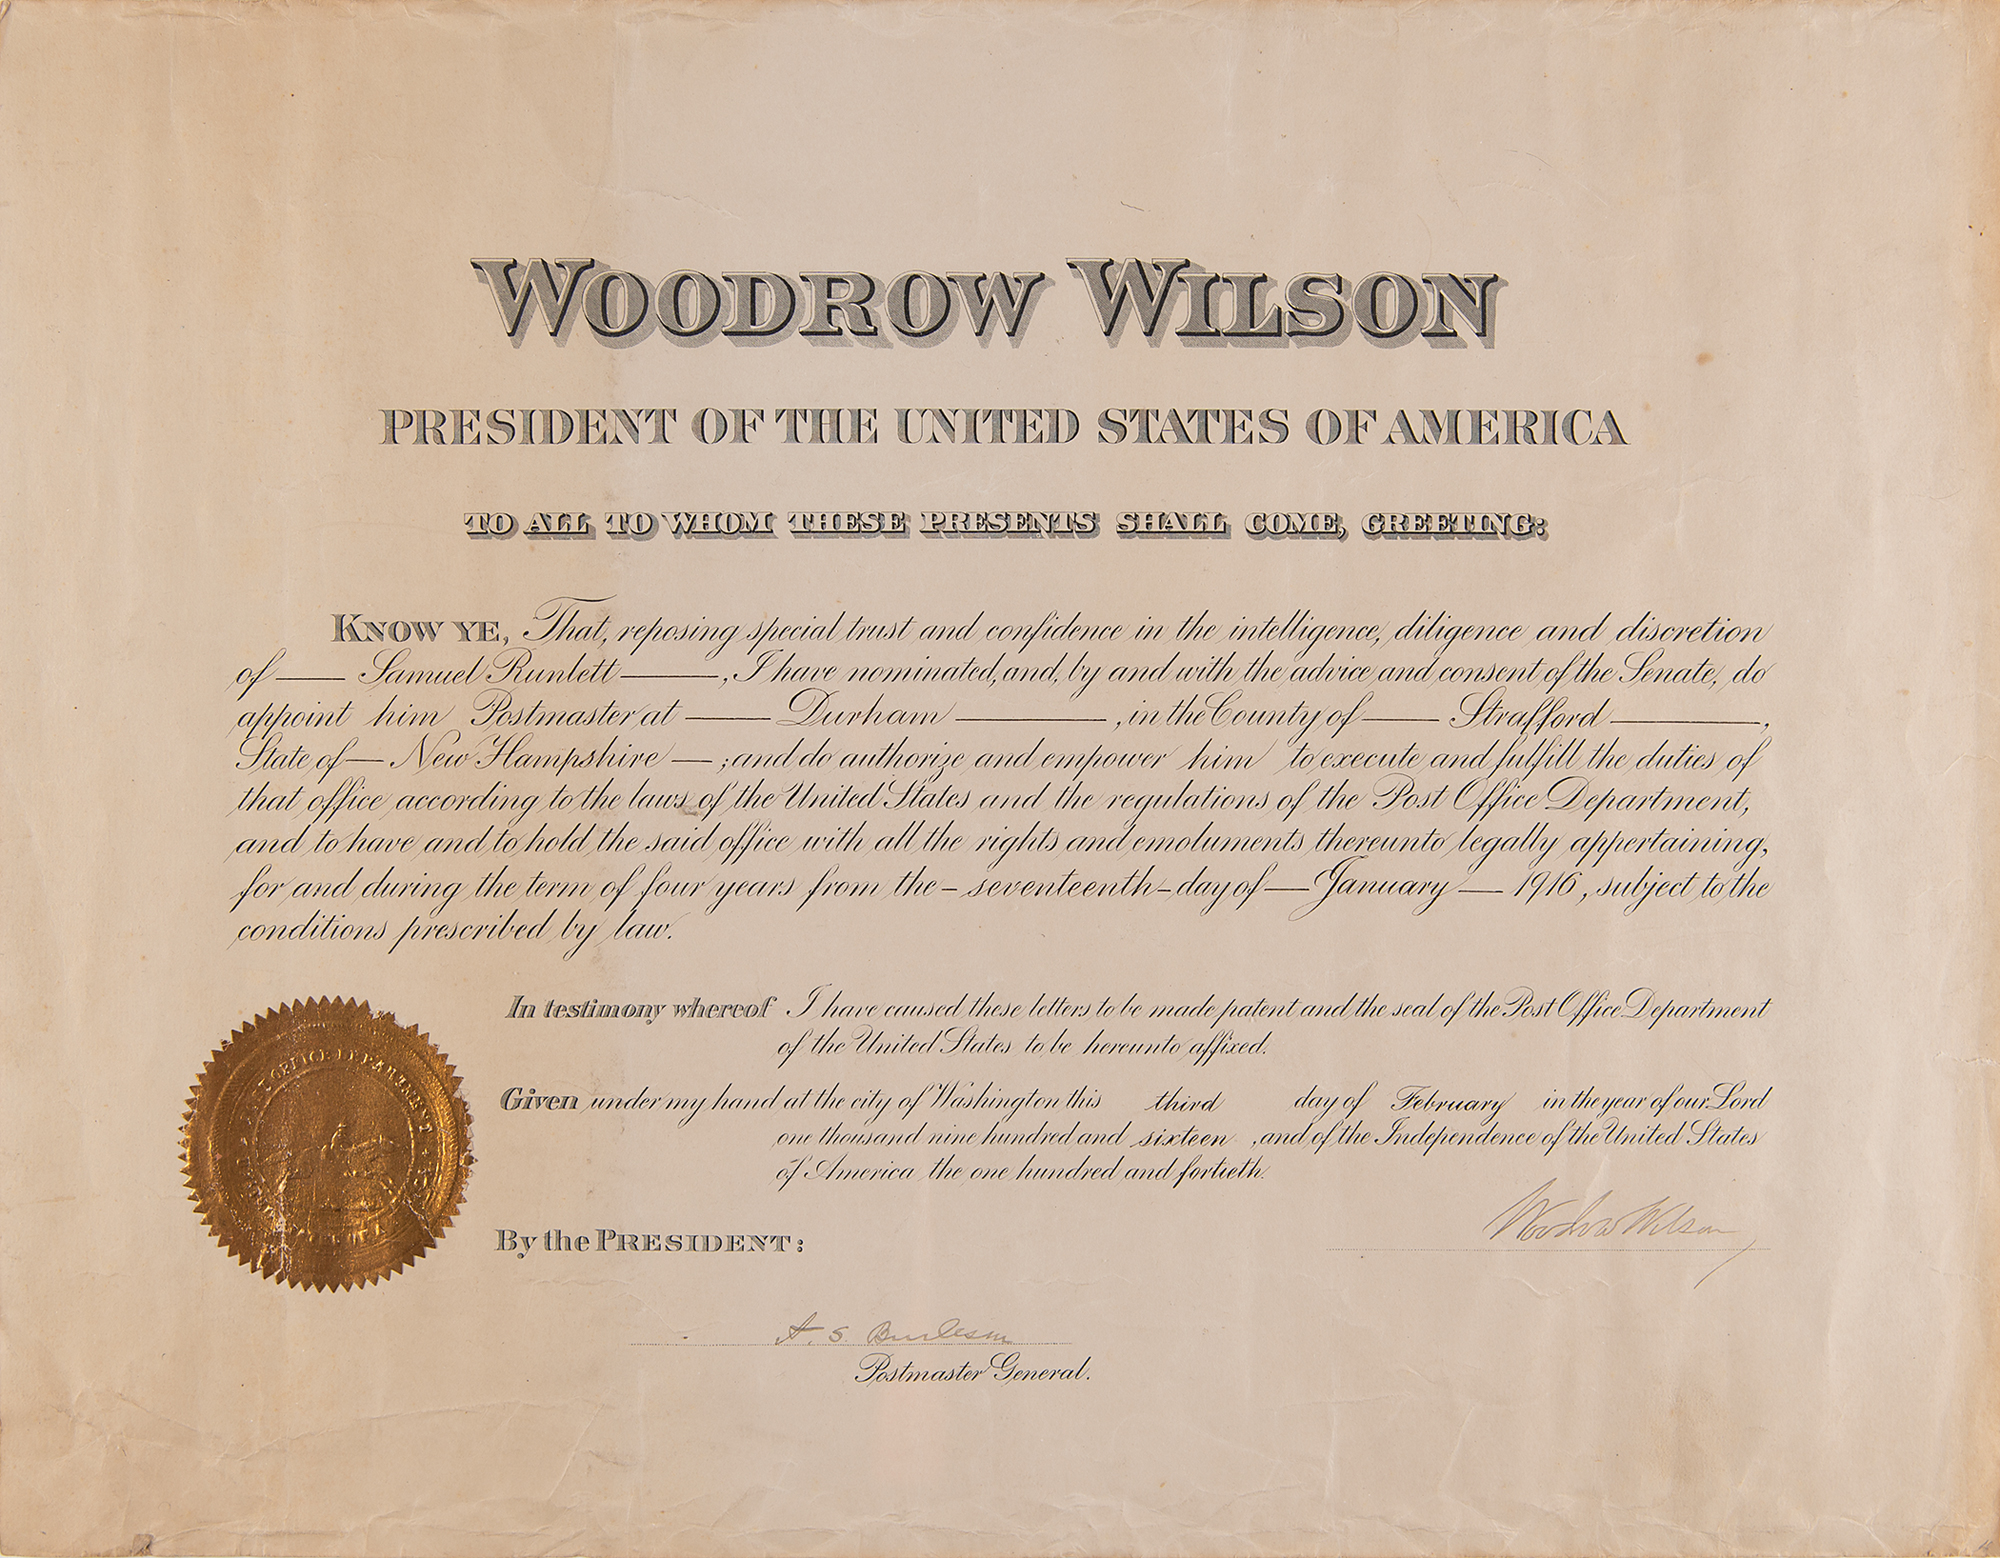 WOODROW WILSON
PRESIDENT OF THE UNITED STATES OF AMERICA
TO ALL TO WHOM THESE PRESENTS SHALL COME, GREETING:
KNOW YE, That, reposing special trust and confidence in the intelligence, diligence and discretion
of — Samuel Runlett —, I have nominated, and, by and with the advice and consent of the Senate, do
appoint him Postmaster at — Durham —, in the County of — Strafford —,
State of — New Hampshire —; and do authorize and empower him to execute and fulfill the duties of
that office according to the laws of the United States and the regulations of the Post Office Department,
and to have and to hold the said office with all the rights and emoluments thereunto legally appertaining,
for and during the term of four years from the – seventeenth – day of — January — 1916, subject to the
conditions prescribed by law.
In testimony whereof I have caused these letters to be made patent and the seal of the Post Office Department
of the United States to be hereunto affixed.
Given under my hand at the city of Washington this third day of February in the year of our Lord
one thousand nine hundred and sixteen, and of the Independence of the United States
of America the one hundred and fortieth.
Woodrow Wilson
By the PRESIDENT:
A. S. Burleson
Postmaster General.
POST OFFICE DEPARTMENT